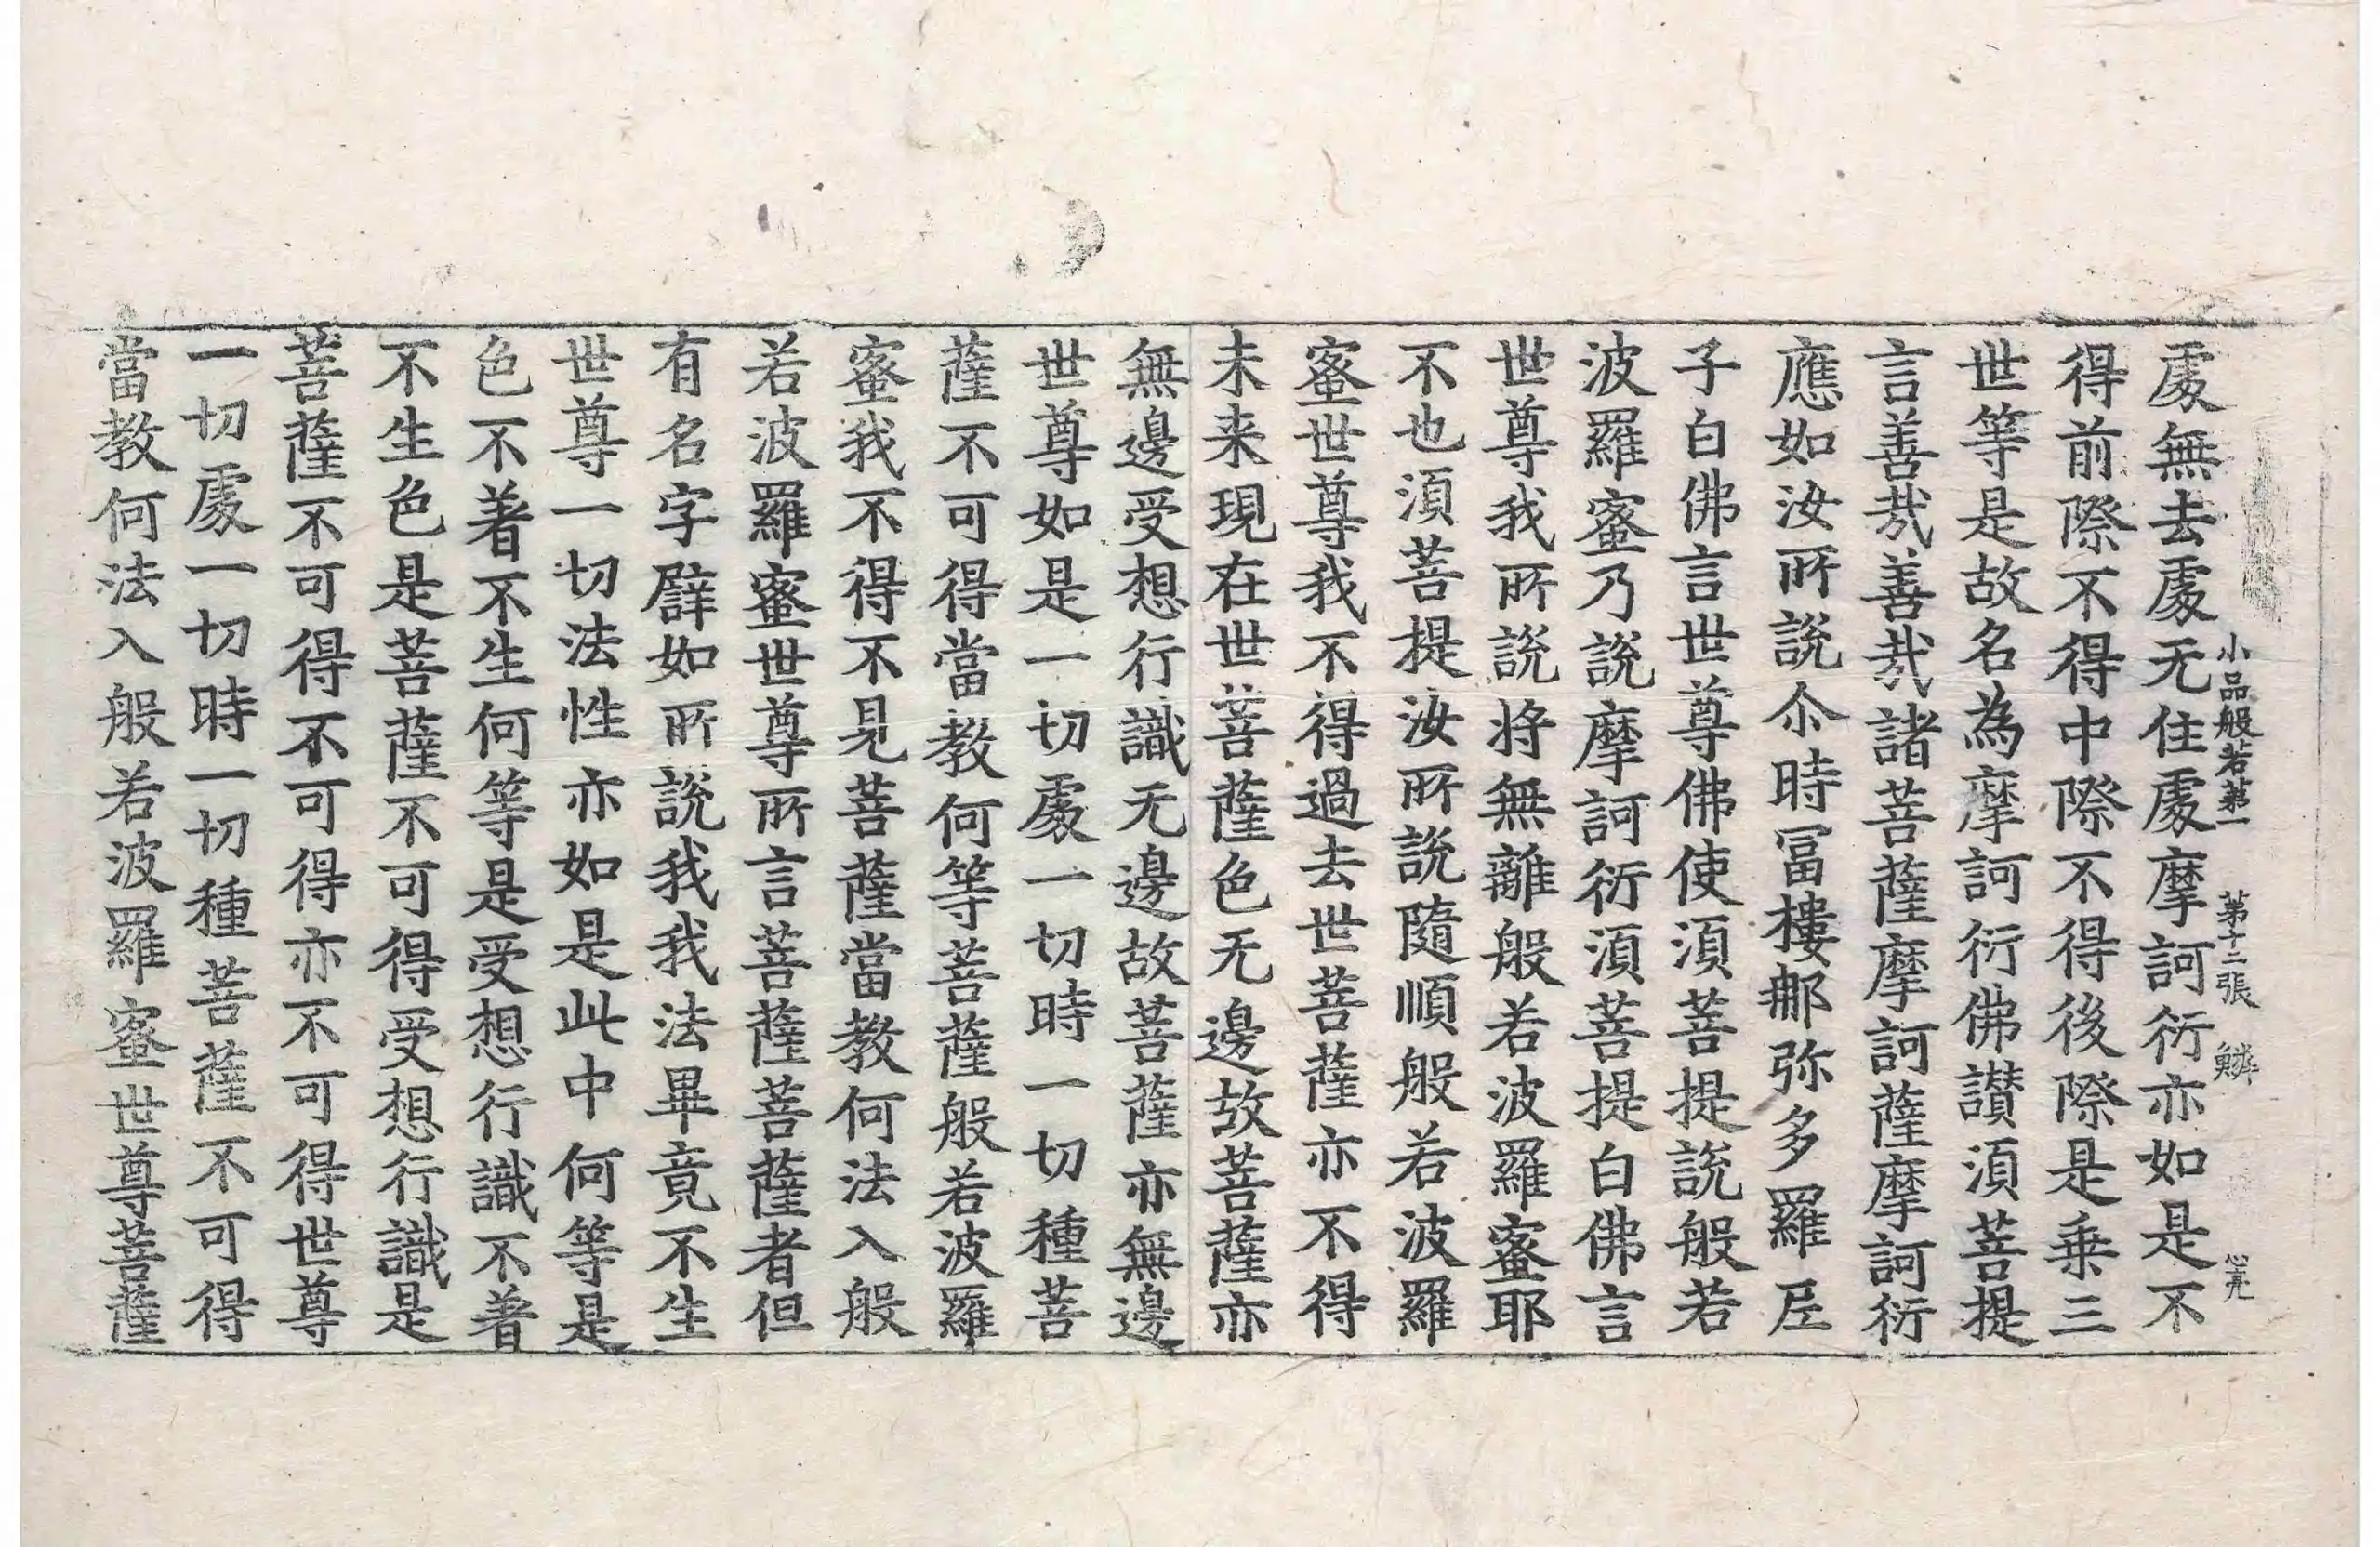 小品般若第一　第十二張　鱗　心亮
處無去處无住處摩訶衍亦如是不
得前際不得中際不得後際是乗三
世等是故名為摩訶衍佛讃湏菩提
言善㢤善㢤諸菩薩摩訶薩摩訶衍
應如汝所說尒時冨樓那弥多羅𡰱
子白佛言世尊佛使湏菩提說般若
波羅蜜乃說摩訶衍湏菩提白佛言
世尊我所說将無離般若波羅蜜耶
不也湏菩提汝所說隨順般若波羅
蜜世尊我不得過去世菩薩亦不得
未来現在世菩薩色无邊故菩薩亦
無邊受想行識无邊故菩薩亦無邊
世尊如是一切處一切時一切種菩
薩不可得當教何等菩薩般若波羅
蜜我不得不見菩薩當教何法入般
若波羅蜜世尊所言菩薩菩薩者但
有名字譬如所說我我法畢竟不生
世尊一切法性亦如是此中何等是
色不著不生何等是受想行識不著
不生色是菩薩不可得受想行識是
菩薩不可得不可得亦不可得世尊
一切處一切時一切種菩薩不可得
當教何法入般若波羅蜜世尊菩薩